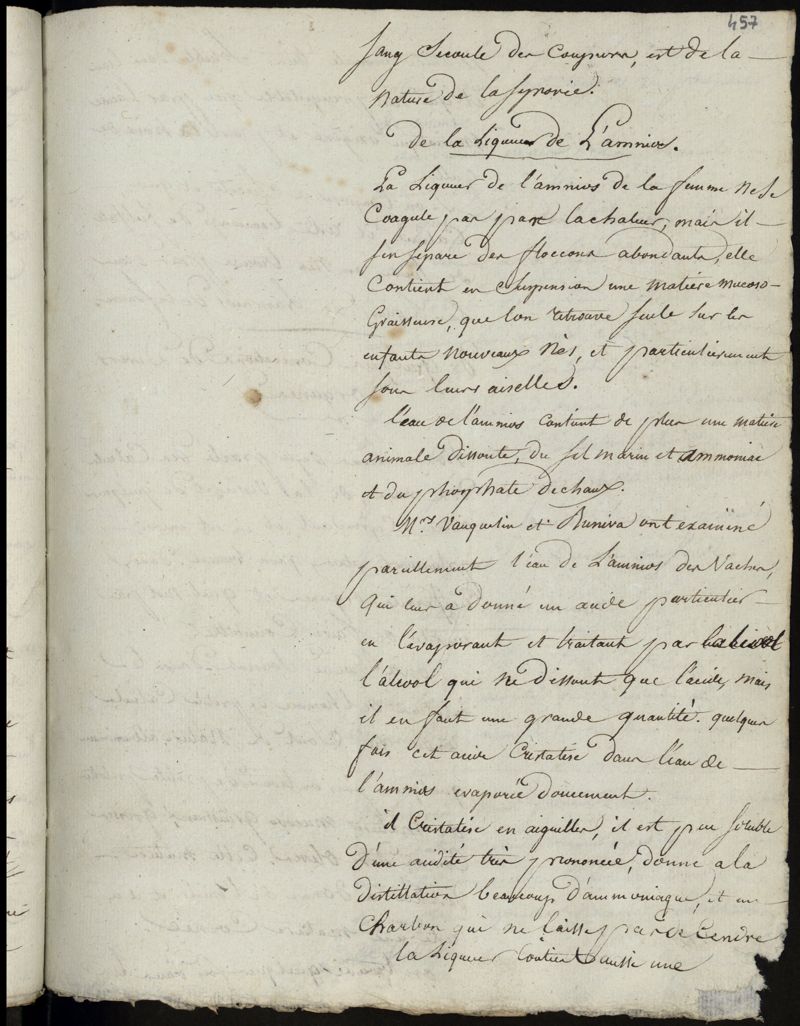 457
sang Secoule des Coupures, est de la
Nature de la synovie.
De la Liqueur de L'amnios.
La Liqueur de l'amnios de la femme ne se
Coagule par par la chaleur, mais il
s'en separe des floccons abondants, elle
Contient en Suspension une matière mucoso-
Graisseuse, que l'on retrouve seule sur les
enfants nouveaux nés, et particulierement
sous leurs aiselles.
l'eau de l'amnios contient de plus une matière
animale dissoute, du sel marin et ammoniac
et du phosphate de chaux.
Mrs Vauquelin et Buniva ont examiné
pareillement l'eau de L'amnios des Vaches,
qui leur a donné un acide particulier
en l'évaporant et traitant par
l'alcool qui ne dissout que l'acide, mais
il en faut une grande quantité. quelques
fois cet acide Cristalise dans l'eau de
l'amnios evaporée doucement.
il Cristalise en aiguilles, il est peu soluble
D'une acidité très prononcée, donne a la
Distillation beaucoup d'ammoniaque, et un
Charbon qui ne laisse pas de Cendre
la Liqueur Contient aussi une